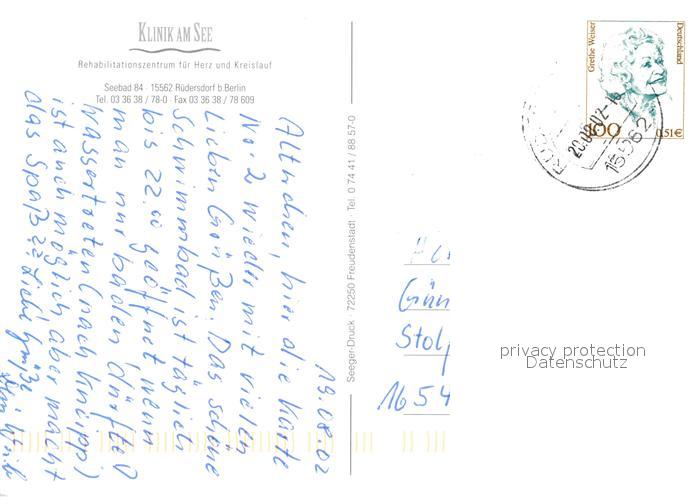 KLINIK AM SEE
Rehabilitationszentrum für Herz und Kreislauf
Seebad 84 · 15562 Rüdersdorf b.Berlin
Tel. 03 36 38 / 78-0 · Fax 03 36 38 / 78 609
19.08.02
hier die Karte
No. 2 wieder mit vielen
Lieben Grüßen. Das schöne
Schwimmbad ist täglich
bis 22.00 geöffnet wenn
man nur baden dürfte
Wassertreten (nach Kneipp)
ist auch möglich aber macht
das Spaß?? Liebe Grüße
Seeger-Druck · 72250 Freudenstadt · Tel. 0 74 41 / 88 57-0
Grethe Weiser
Deutschland
100
0,51€
20.08.02
15562
Gün
Stolp
1654
privacy protection
Datenschutz